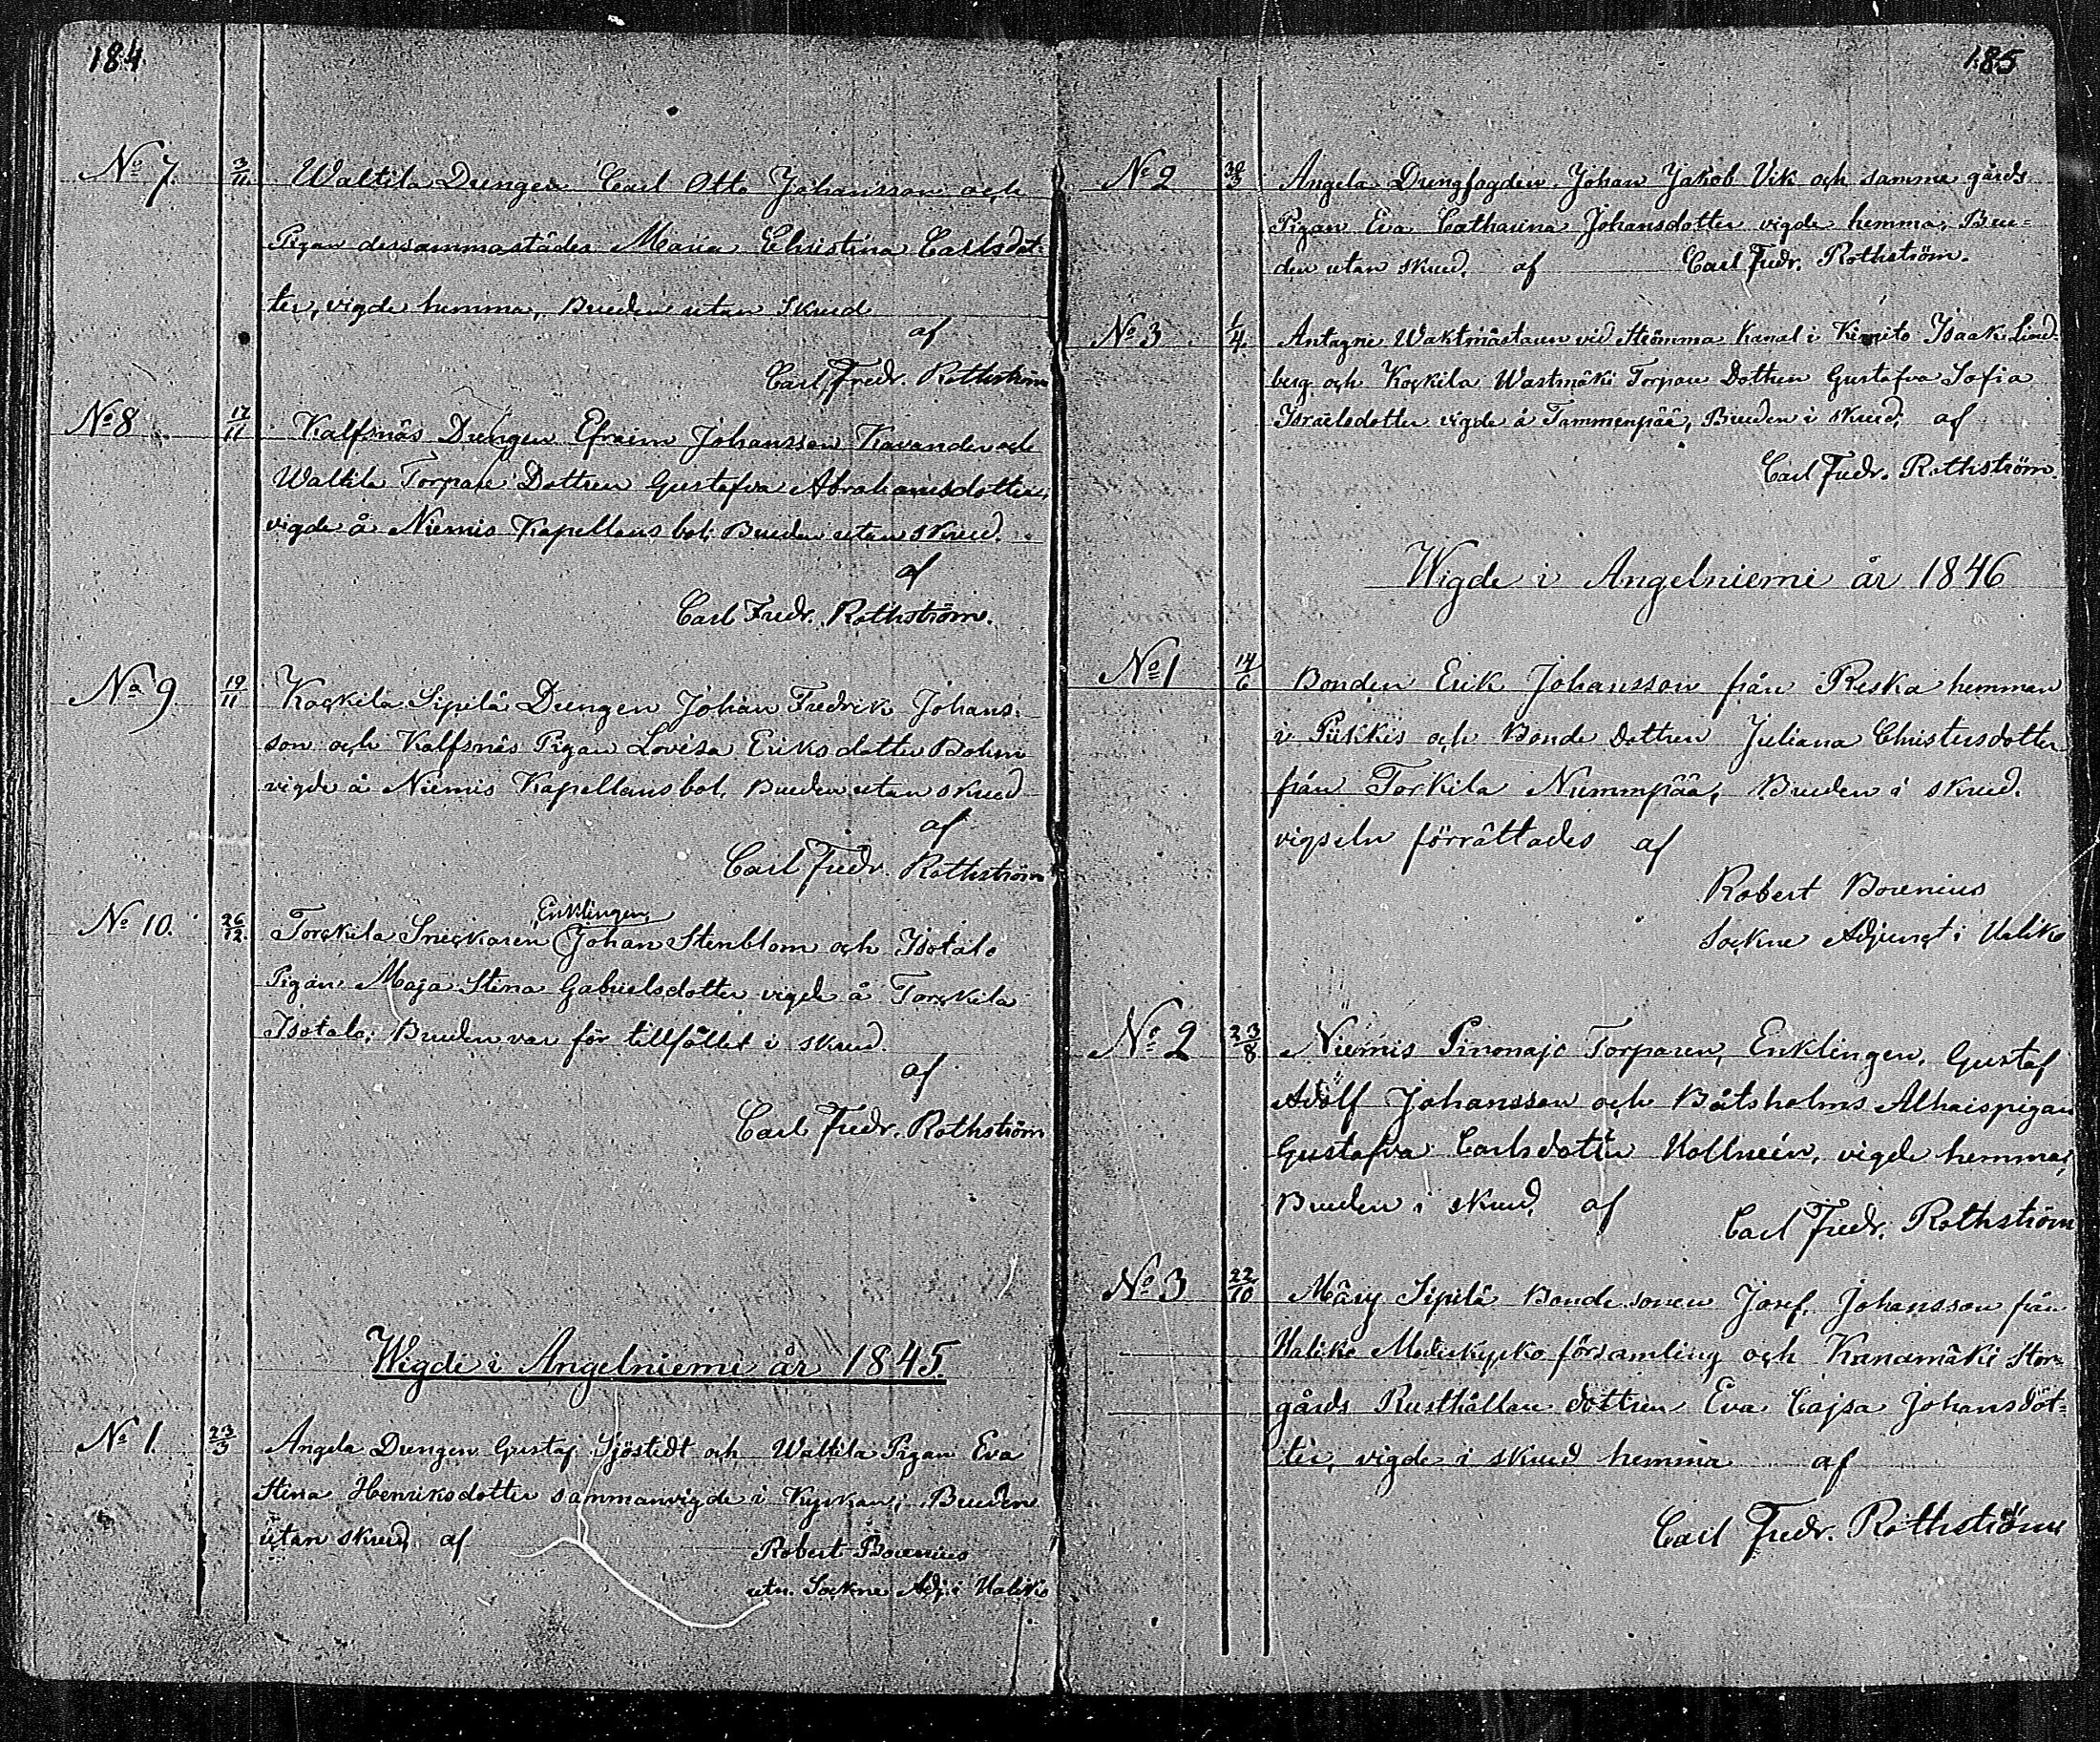 184.
No 7. 3/11. Waltila Drengen Carl Otto Johansson och
Pigan dersammastädes Maria Christina Carlsdot-
ter, vigde hemma, Bruden utan Skrud
af
Carl Fredr. Rothström
No 8 17/11 Kalfsnäs Drengen Efraim Johansson Kavander och
Waltila Torpare Dottren Gustafva Abrahamsdotter,
vigde å Niemis Kapellans bol; Bruden utan skrud.
af
Carl Fredr. Rothström.
No 9. 19/11 Koskila Sipilä Drengen Johan Fredrik Johans-
son och Kalfsnäs Pigan Lovisa Eriksdotter Bohm
vigde å Niemis Kapellans bol, Bruden utan skrud
af
Carl Fredr. Rothström
Enklingen,
No 10. 26/12. Torskila Snickaren Johan Stenblom och Isotalo
Pigan Maja Stina Gabrielsdotter vigde å Torskila
Isotalo; Bruden var för tillfället i skrud.
af
Carl Fredr. Rothström
Wigde i Angelniemi år 1845.
No 1. 23/3 Angela Drengen Gustaf Sjöstedt och Waltila Pigan Eva
Stina Henriksdotter sammanvigde i Kyrkan; Bruden
utan skrud, af
Robert Borenius
utn. Sockne Adj. i Haliko
185
No 2 30/3 Angela Drengfogden Johan Jakob Vik och samma gårds
Pigan Eva Catharina Johansdotter vigde hemma, Bru-
den utan skrud, af Carl Fredr. Rothström.
No 3 1/4. Antagne Waktmästaren vid Strömma Kanal i Kimito Isaak Lind-
berg och Koskila Wastmäki Torpare Dottren Gustafva Sofia
Israelsdotter vigde å Tammenpää, Bruden i skrud; af
Carl Fredr. Rothström.
Wigde i Angelniemi år 1846
No 1 14/6 Bonden Erik Johansson från Reska hemman
i Piikkis och Bonde Dottren Juliana Christersdotter
från Torkila Nummpää, Bruden i skrud.
vigseln förrättades af
Robert Borenius
Sockne Adjunct i Haliko
No 2 23/8 Niemis Pinonajo Torparen, Enklingen, Gustaf
Adolf Johansson och Båtsholms Alhaispigan
Gustafva Carlsdotter Hollneén, vigde hemma,
Bruden i skrud, af Carl Fredr. Rothström
No 3 22/10 Märy Sipilä Bonde sonen Josef Johansson från
Haliko Moderkyrko församling och Kanamäki Stor-
gårds Rusthållare dottren Eva Cajsa Johansdot-
ter, vigde i skrud hemma af
Carl Fredr. Rothström